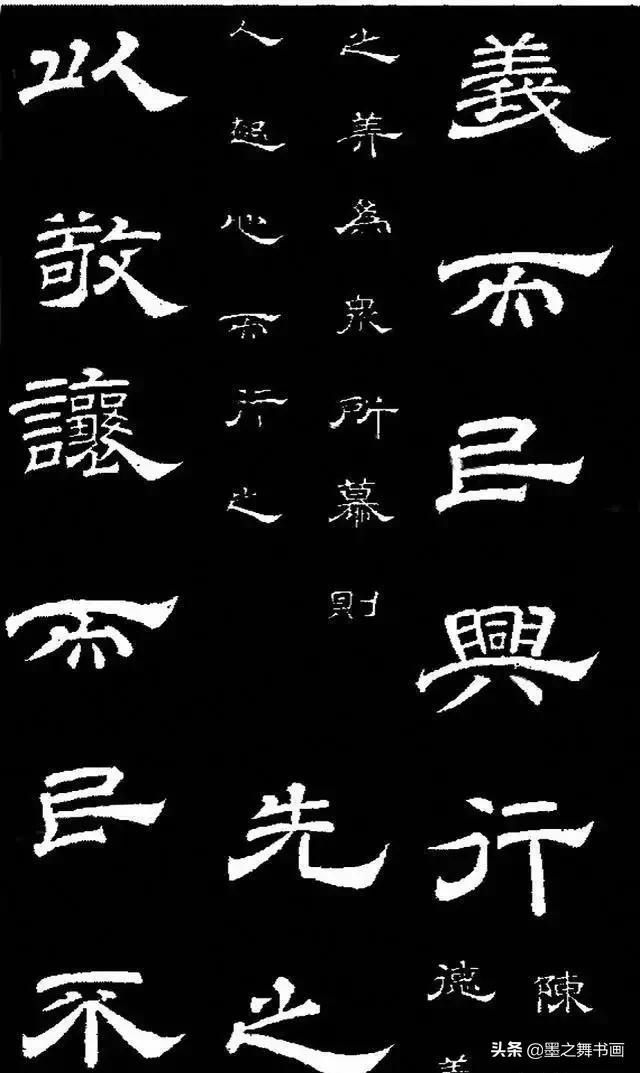 義而民興行
陳
德
之美為衆所慕則
人起心而行之
先之
以敬讓而民不
头条 @墨之舞书画